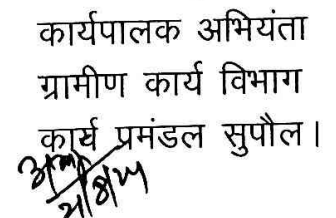 कार्यपालक अभियंता
ग्रामीण कार्य विभाग
कार्य प्रमंडल सुपौल।